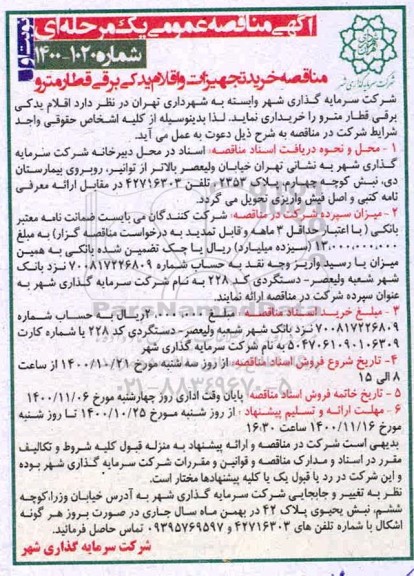 آگهی مناقصه عمومی یک مرحله‌ای
شماره ۱۰۲۰-۱۴۰۰
نوبت دوم
شرکت سرمایه گذاری شهر
مناقصه خرید تجهیزات و اقلام یدکی برقی قطار مترو
شرکت سرمایه گذاری شهر وابسته به شهرداری تهران در نظر دارد اقلام یدکی
برقی قطار مترو را خریداری نماید. لذا بدینوسیله از کلیه اشخاص حقوقی واجد
شرایط شرکت در مناقصه به شرح ذیل دعوت به عمل می آید.
۱ - محل و نحوه دریافت اسناد مناقصه: اسناد در محل دبیرخانه شرکت سرمایه
گذاری شهر به نشانی تهران خیابان ولیعصر بالاتر از توانیر، روبروی بیمارستان
دی، نبش کوچه چهارم پلاک ۲۳۵۳ تلفن ۴۲۷۱۶۳۰۳ در مقابل ارائه معرفی
نامه کتبی و اصل فیش واریزی تحویل می گردد.
۲ - میزان سپرده شرکت در مناقصه: شرکت کنندگان می بایست ضمانت نامه معتبر
بانکی (با اعتبار حداقل ۳ ماهه و قابل تمدید به درخواست مناقصه گزار) به مبلغ
۱۳,۰۰۰,۰۰۰,۰۰۰ (سیزده میلیارد) ریال یا چک تضمین شده بانکی به همین
میزان یا رسید واریز وجه نقد به حساب شماره ۷۰۰۸۱۷۲۲۶۸۰۹ نزد بانک
شهر شعبه ولیعصر- دستگردی کد ۲۲۸ به نام شرکت سرمایه گذاری شهر به
عنوان سپرده شرکت در مناقصه ارائه نمایند.
۳ - مبلغ خرید اسناد مناقصه: مبلغ ریال به حساب شماره
۷۰۰۸۱۷۲۲۶۸۰۹ نزد بانک شهر شعبه ولیعصر- دستگردی کد ۲۲۸ یا شماره کارت
۵۰۴۷۰۶۱۰۹۰۱۰۶۳۰۹ به نام شرکت سرمایه گذاری شهر
۴ - تاریخ شروع فروش اسناد مناقصه: از روز سه شنبه مورخ ۱۴۰۰/۱۰/۲۱ از ساعت
۸ الی ۱۵
۵ - تاریخ خاتمه فروش اسناد مناقصه: پایان وقت اداری روز چهارشنبه مورخ ۱۴۰۰/۱۱/۰۶
۶ - مهلت ارائه و تسلیم پیشنهاد: از روز شنبه مورخ ۱۴۰۰/۱۰/۲۵ تا روز شنبه
مورخ ۱۴۰۰/۱۱/۱۶ ساعت ۱۶:۳۰
بدیهی است شرکت در مناقصه و ارائه پیشنهاد به منزله قبول کلیه شروط و تکالیف
مقرر در اسناد و مدارک مناقصه و قوانین و مقررات شرکت سرمایه گذاری شهر بوده
و این شرکت در رد یا قبول یک یا کلیه پیشنهادها مختار است.
نظر به تغییر و جابجایی شرکت سرمایه گذاری شهر به آدرس خیابان وزرا،کوچه
ششم، نبش یحیوی پلاک ۴۲ در بهمن ماه سال جاری در صورت بروز هر گونه
اشکال با شماره تلفن های ۴۲۷۱۶۳۰۳ و ۰۹۳۹۵۷۶۹۵۹۷ تماس حاصل فرمائید.
شرکت سرمایه گذاری شهر
ParsNamadData
۰۲۱-۸۸۳۴۹۶۷۰-۵